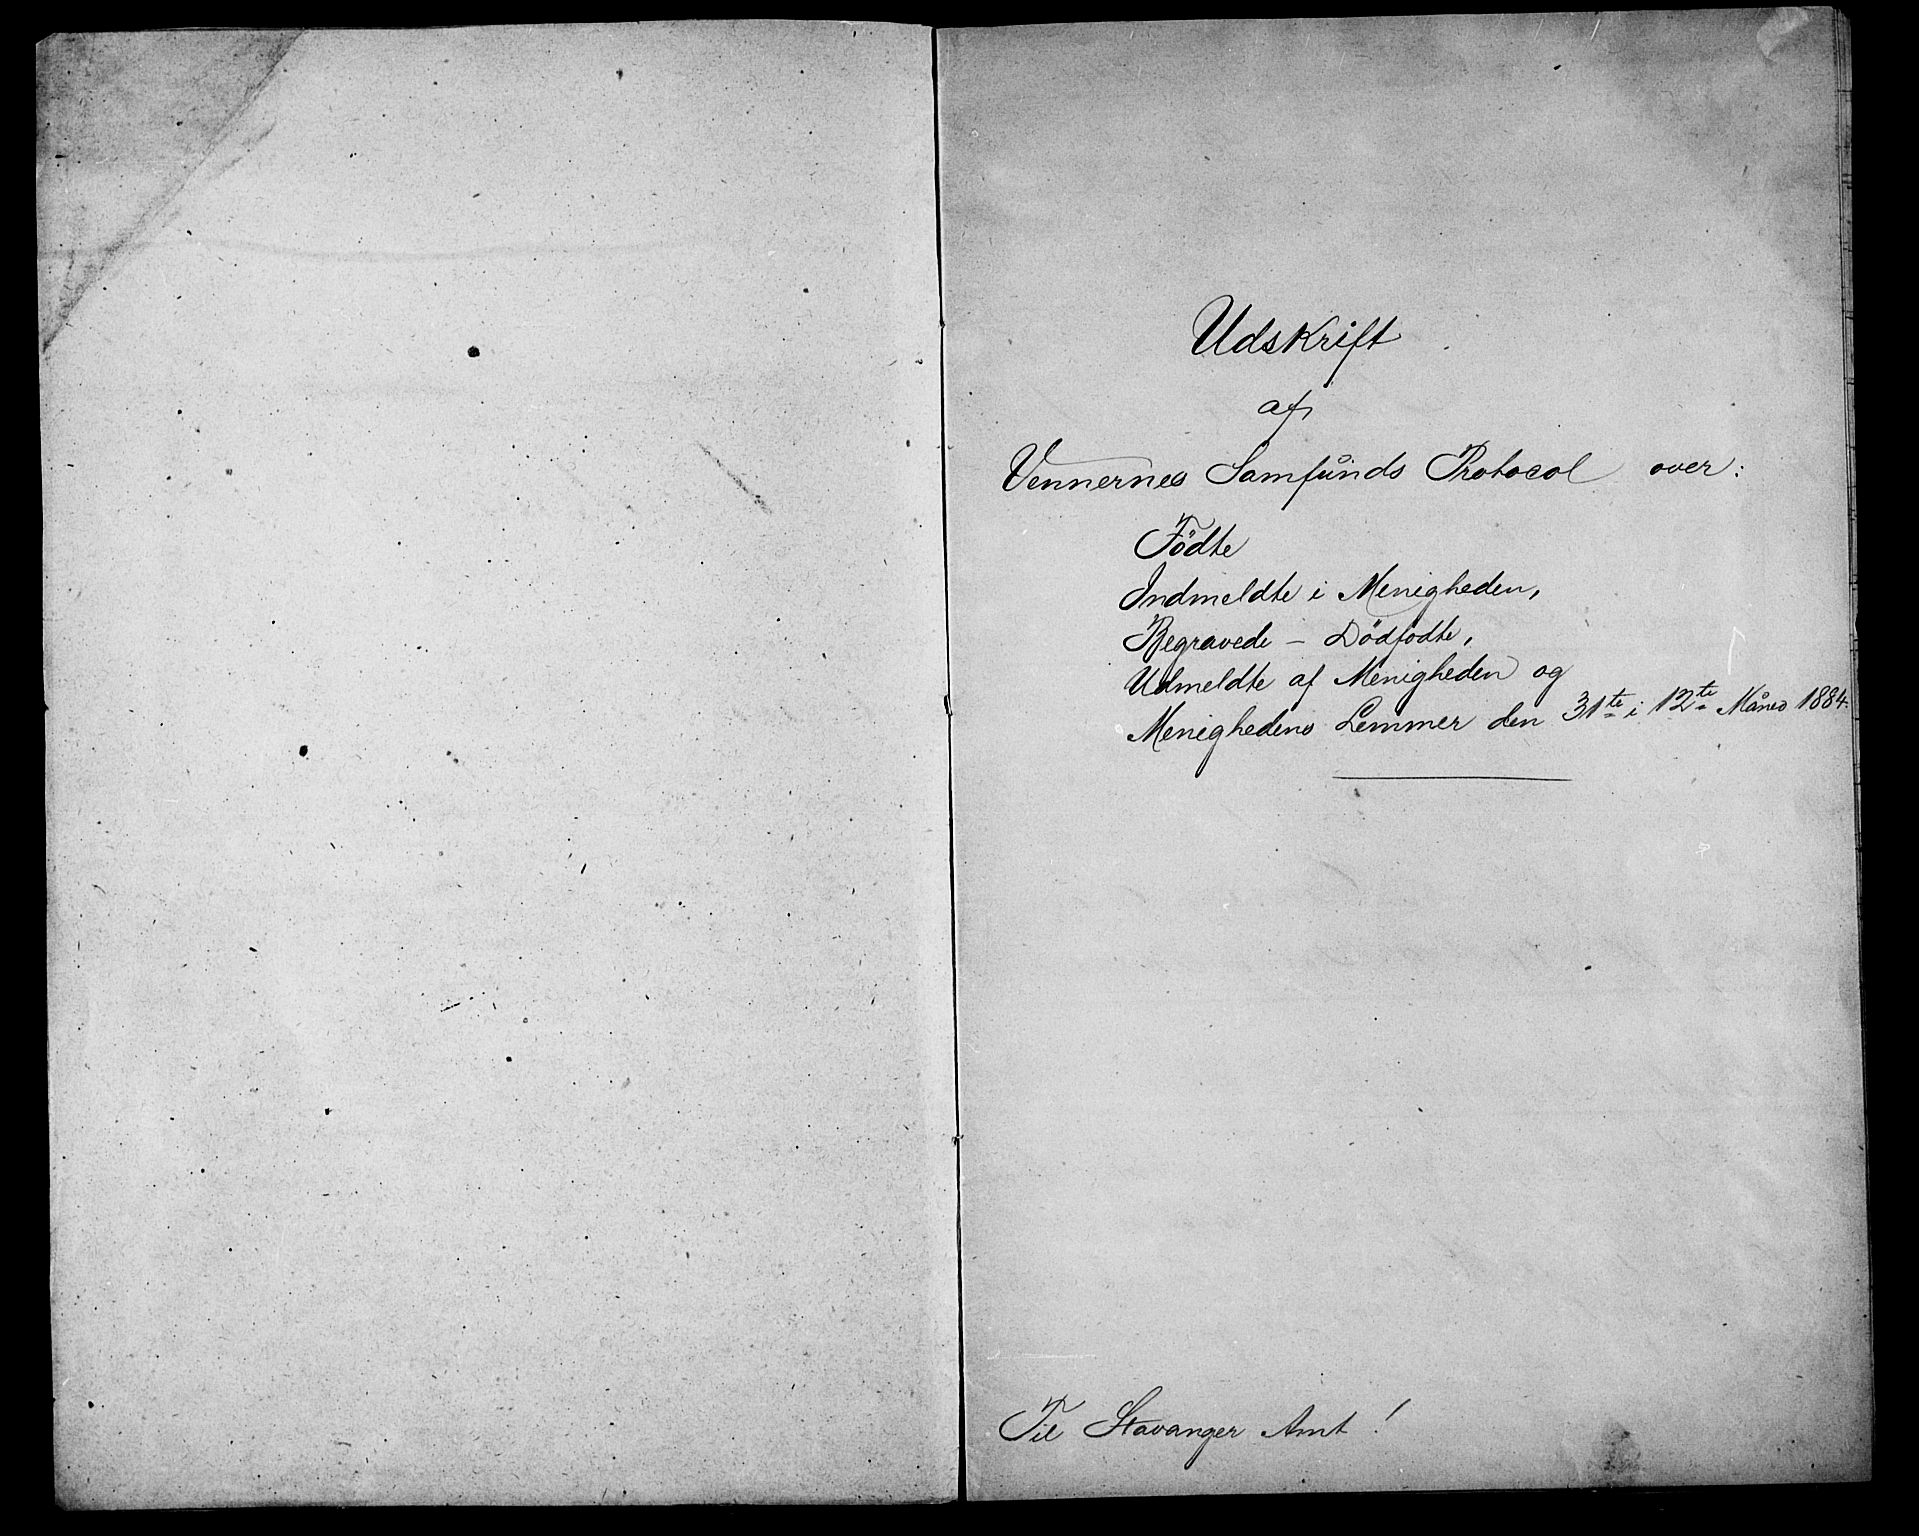 Udskrift
af
Vennernes Samfunds Protocol over:
Födte
Indmeldte i Menigheden,
Begravede – Dödfödte,
Udmeldte af Menigheden og
Menighedens Lemmer den 31te i 12te Måned 1884.
Til Stavanger Amt!